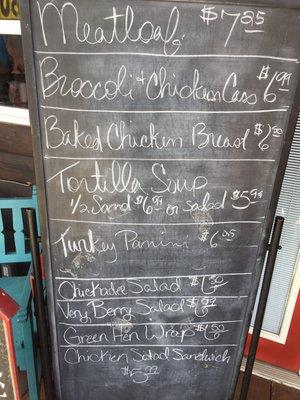 Meatloaf $7.55
Broccoli & Chicken Cass $6.99
Baked Chicken Bread $7.50
Tortilla Soup
1/2 Sand $6.99 or salad $5.99
Turkey Panini $6.55
Chickadee Salad
Very Berry Salad
Green Hen Wrap
Chicken Salad Sandwich
$5.99